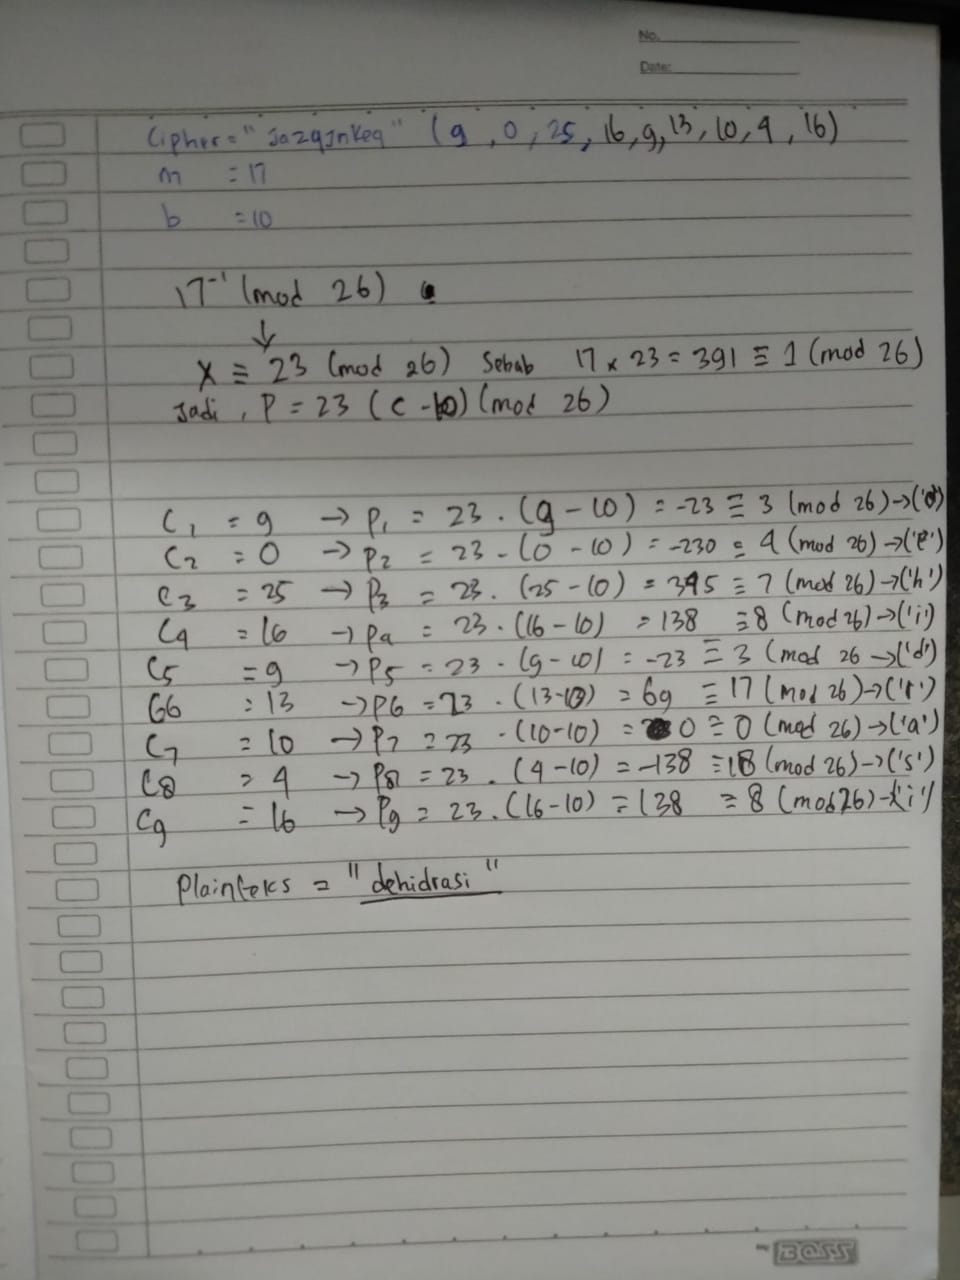 No.
Date:
Cipher = "JazqJnkeq" (9, 0, 25, 16, 9, 13, 10, 4, 16)
m = 17
b = 10
17⁻¹ (mod 26)
↓
x ≡ 23 (mod 26) Sebab 17 x 23 = 391 ≡ 1 (mod 26)
Jadi, P = 23 (c - 10) (mod 26)
C1 = 9 → P1 = 23 . (9 - 10) = -23 ≡ 3 (mod 26) → ('d')
C2 = 0 → P2 = 23 - (0 - 10) = -230 = 4 (mod 26) → ('e')
C3 = 25 → P3 = 23. (25 - 10) = 345 ≡ 7 (mod 26) → ('h')
C4 = 16 → P4 = 23 . (16 - 10) = 138 ≡ 8 (mod 26) → ('i')
C5 = 9 → P5 = 23 . (9 - 10) = -23 ≡ 3 (mod 26 → ('d')
C6 = 13 → P6 = 23 . (13 - 10) = 69 ≡ 17 (mod 26) → ('r')
C7 = 10 → P7 = 23 . (10 - 10) = 0 ≡ 0 (mod 26) → ('a')
C8 = 4 → P8 = 23 . (4 - 10) = -138 ≡ 18 (mod 26) → ('s')
C9 = 16 → P9 = 23 . (16 - 10) = 138 ≡ 8 (mod 26) → ('i')
Plainteks = "dehidrasi"
BOSS